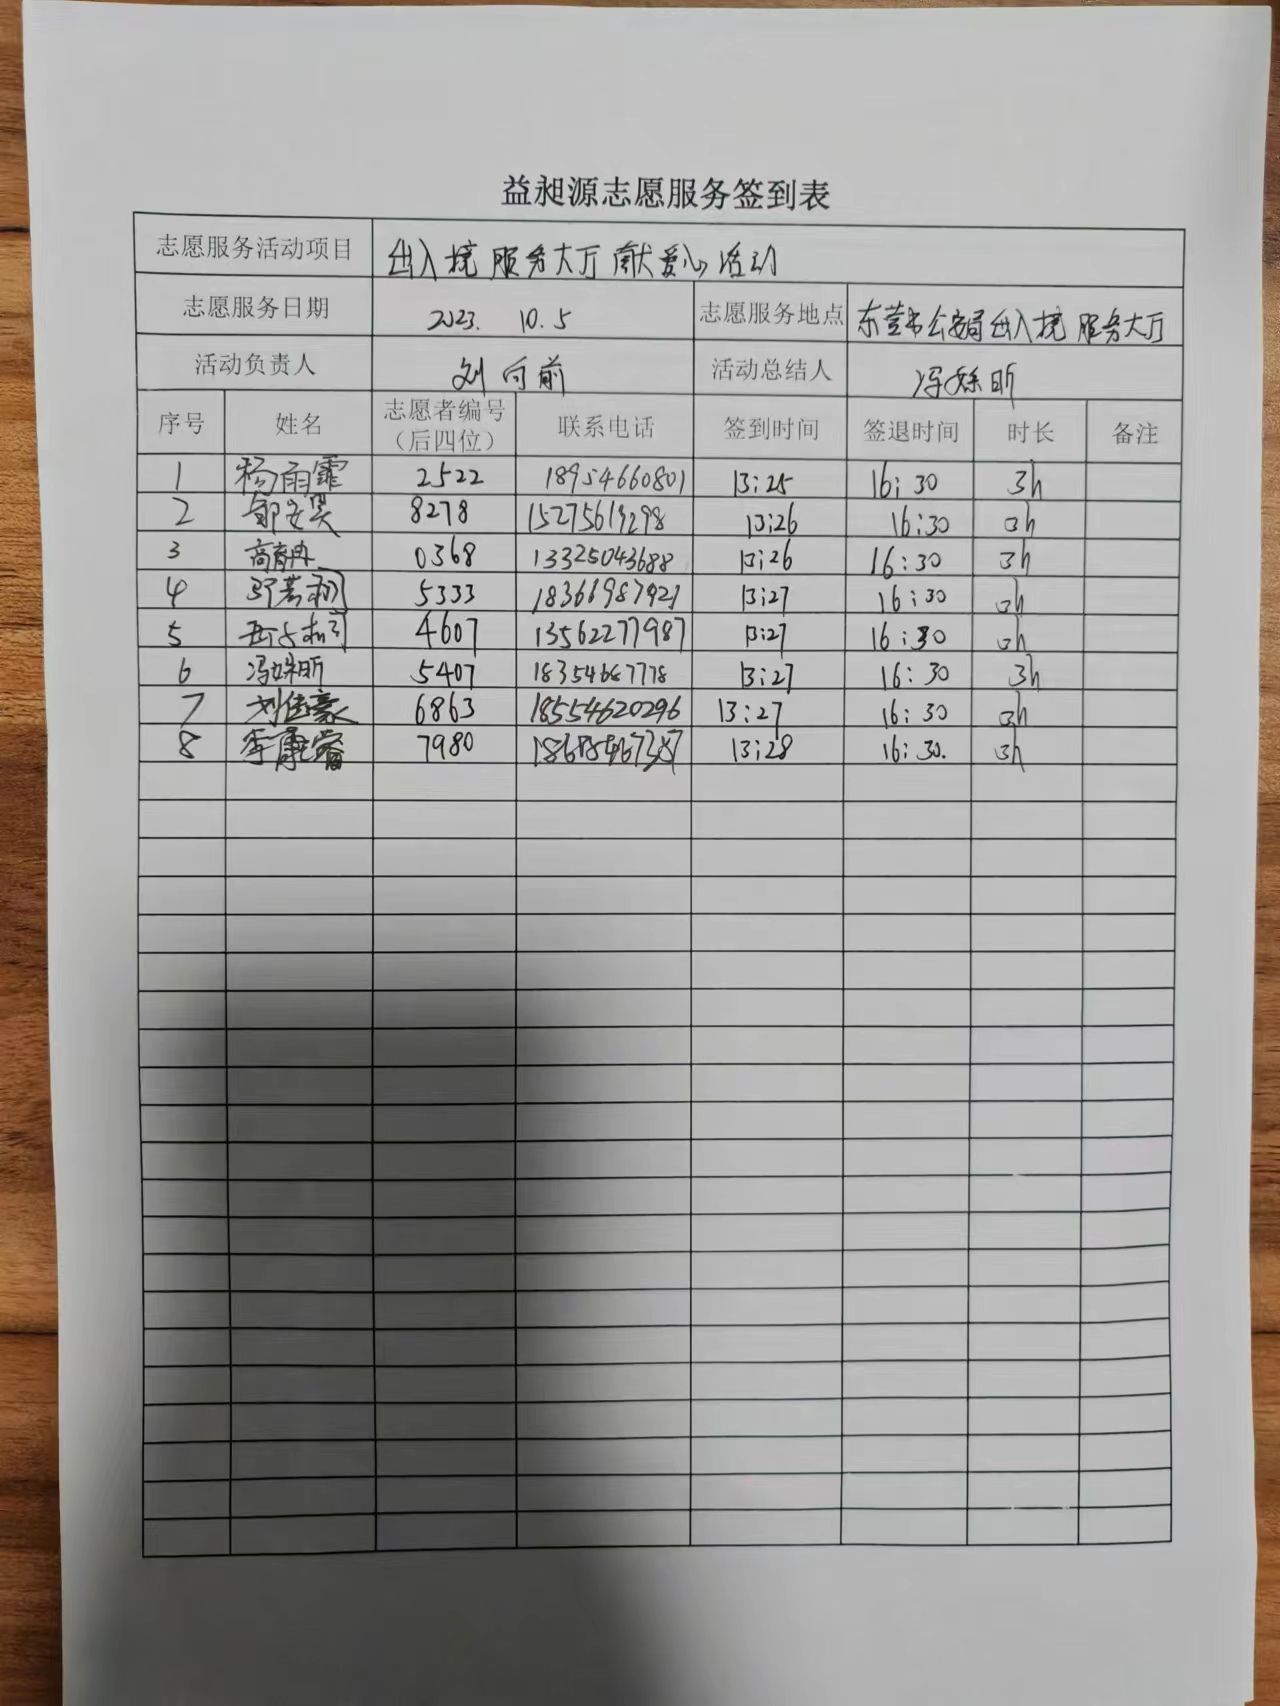 益昶源志愿服务签到表
志愿服务活动项目 出入境服务大厅献爱心活动
志愿服务日期 2023. 10.5 志愿服务地点 东营市公安局出入境服务大厅
活动负责人 刘向前 活动总结人 冯姝昕
序号 姓名 志愿者编号（后四位） 联系电话 签到时间 签退时间 时长 备注
1 杨雨霏 2522 18954660801 13:25 16:30 3h
2 8278 15275619298 13:26 16:30 3h
3 0368 13325043688 13:26 16:30 3h
4 5333 18366987921 13:27 16:30 3h
5 4607 13562277987 13:27 16:30 3h
6 冯姝昕 5407 18354667778 13:27 16:30 3h
7 刘佳豪 6863 18554620296 13:27 16:30 3h
8 李康睿 7980 13:28 16:30. 3h